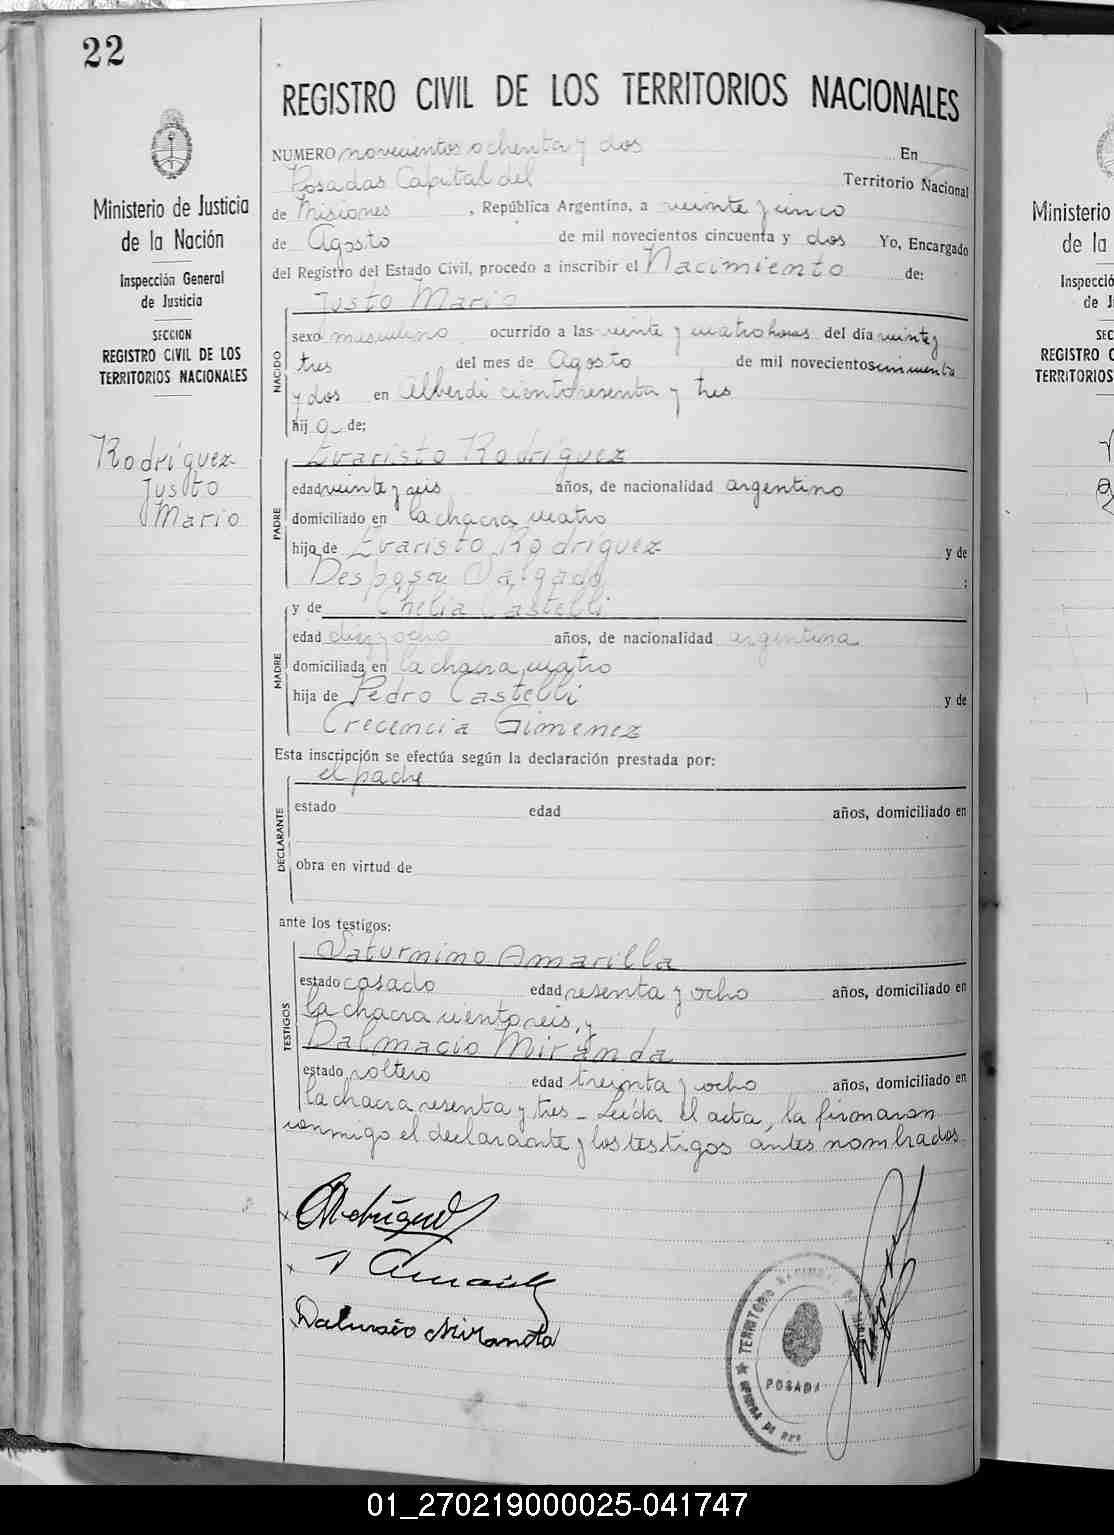 22
Ministerio de Justicia
de la Nación
Inspección General
de Justicia
SECCION
REGISTRO CIVIL DE LOS
TERRITORIOS NACIONALES
Rodríguez
Justo
Mario
REGISTRO CIVIL DE LOS TERRITORIOS NACIONALES
NUMERO novecientos ochenta y dos En
Posadas Capital del Territorio Nacional
de Misiones, República Argentina, a veinte y cinco
de Agosto de mil novecientos cincuenta y dos Yo, Encargado
del Registro del Estado Civil, procedo a inscribir el Nacimiento de:
Justo Mario
NACIDO
sexo masculino ocurrido a las veinte y cuatro horas del día veinte y
tres del mes de Agosto de mil novecientos cincuenta
y dos en Alberdi ciento sesenta y tres
hij o de:
Evaristo Rodríguez
PADRE
edad veinte y seis años, de nacionalidad argentino
domiciliado en la chacra cuatro
hijo de Evaristo Rodríguez y de
Salgado;
y de Castelli
MADRE
edad diez y ocho años, de nacionalidad argentina
domiciliada en la chacra cuatro
hija de Pedro Castelli y de
Crecencia Gimenez
Esta inscripción se efectúa según la declaración prestada por:
el padre
DECLARANTE
estado edad años, domiciliado en
obra en virtud de
ante los testigos:
Saturnino Amarilla
TESTIGOS
estado casado edad sesenta y ocho años, domiciliado en
la chacra ciento seis, y
Dalmacio Miranda
estado soltero edad treinta y ocho años, domiciliado en
la chacra sesenta y tres - Leída el acta, la firmaron
conmigo el declarante y los testigos antes nombrados
Dalmacio Miranda
TERRITORIO NACIONAL DE
POSADA
Ministerio
de la
Inspecció
de J
SEC
REGISTRO C
TERRITORIOS
01_270219000025-041747